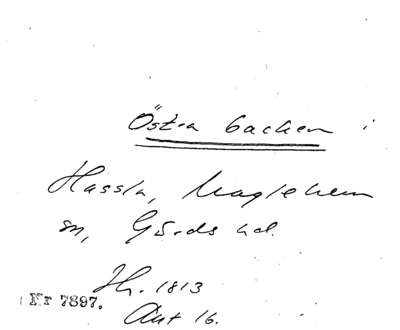 Östra backen i
Hassla, Maglehem
sn, Gärds hd.
Jh. 1813
Nr 7897.
Akt 16.